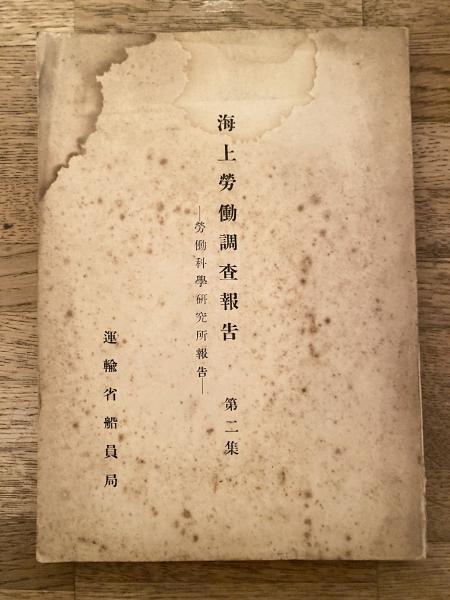 海上勞働調査報告 第二集
―勞働科學硏究所報告―
運輸省船員局